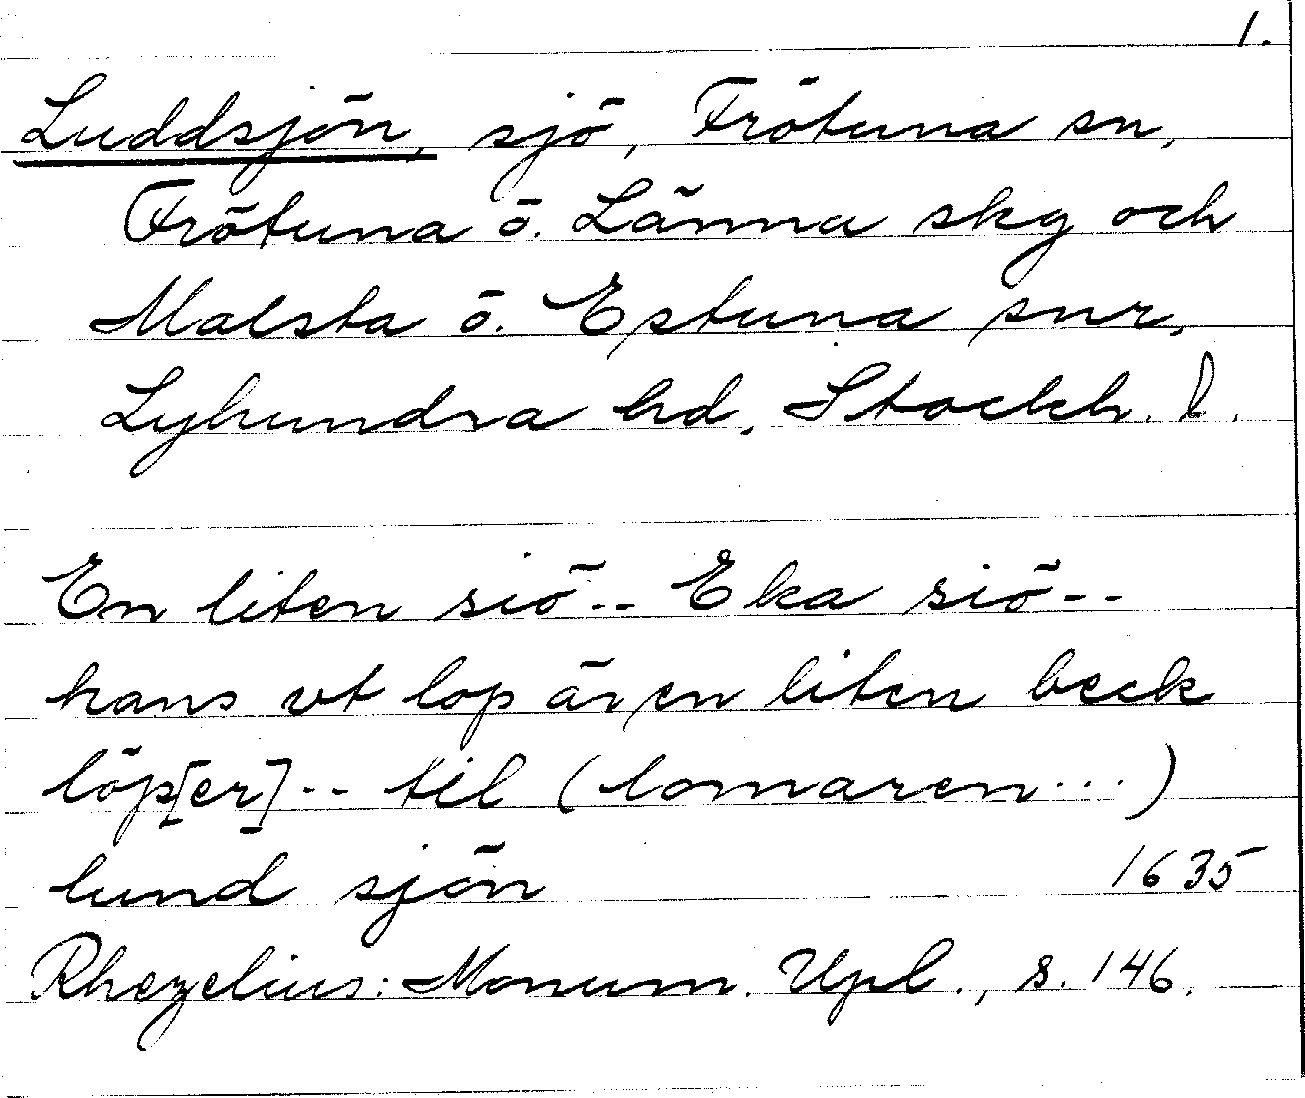 1.
Luddsjön, sjö, Frötuna sn,
Frötuna o. Länna skg och
Malsta o. Estuna snr,
Lyhundra hd, Stockh. l.
En liten siö -- Eka siö --
hans vt lop är en liten beck
löp[er] -- til (lomaren...)
lund sjön 1635
Rhezelius: Monum. Upl., s. 146.